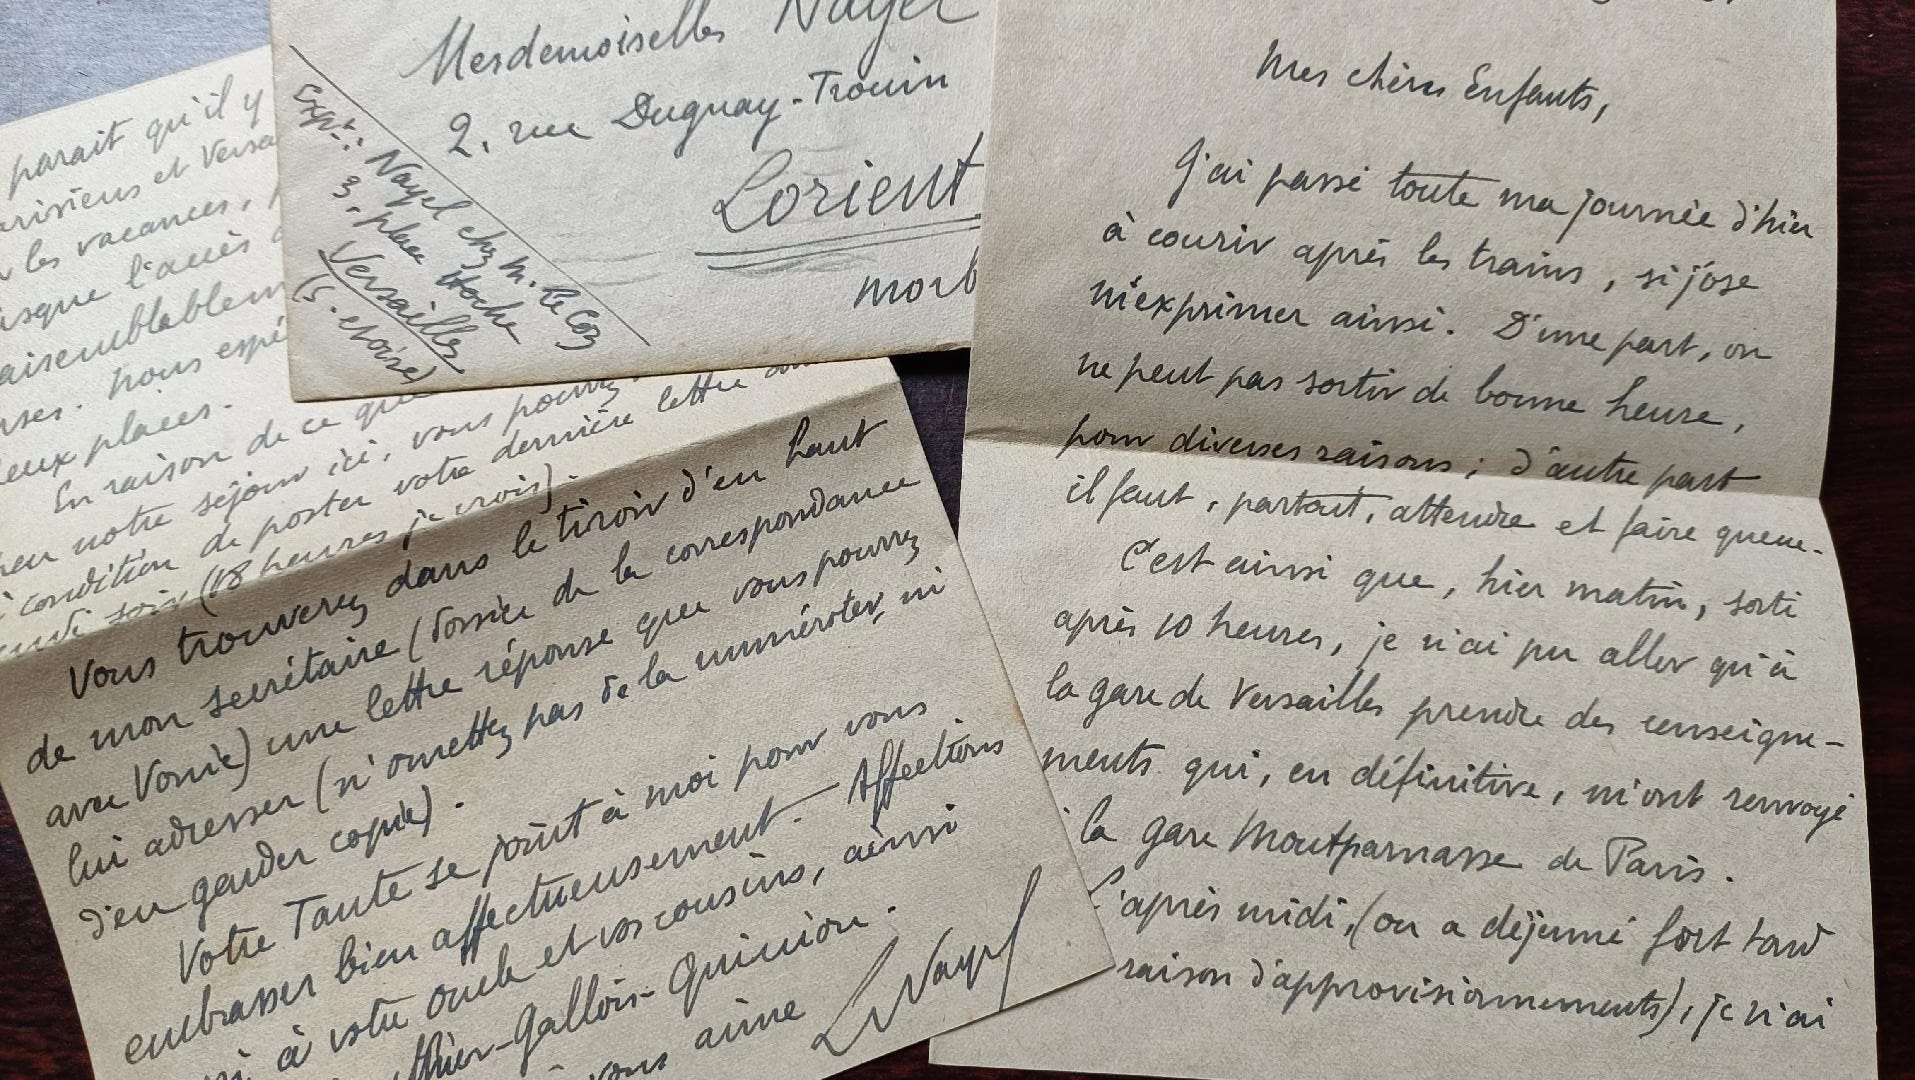 Mesdemoiselles Nayel
2, rue Duguay-Trouin
Lorient
Morb
Expr: Nayel chez M. Le Coz
3, place Hoche
Versailles
(S. et Oise)
Mes chères Enfants,
J'ai passé toute ma journée d'hier
à courir après les trains, si j'ose
m'exprimer ainsi. D'une part, on
ne peut pas sortir de bonne heure,
pour diverses raisons ; d'autre part
il faut, partout, attendre et faire queue.
C'est ainsi que, hier matin, sorti
après 10 heures, je n'ai pu aller qu'à
la gare de Versailles prendre des renseigne-
ments qui, en définitive, m'ont renvoyé
la gare Montparnasse de Paris.
L'après midi, (on a déjeuné fort tard
raison d'approvisionnements), je n'ai
parait qu'il y
arisiens et Versa
les vacances,
usque l'accès
aisemblablem
nses. Nous espé
eux places.
En raison de ce que
notre séjour ici, vous pourrez
condition de poster votre dernière lettre
soir (18 heures je crois).
Vous trouverez dans le tiroir d'en haut
de mon secrétaire (dossier de la correspondance
avec Vonic) une lettre réponse que vous pourrez
lui adresser (n'omettez pas de la numéroter, ni
d'en garder copie).
Votre Tante se joint à moi pour vous
embrasser bien affectueusement. Affections
à votre oncle et vos cousins, ainsi
-Gallois-Quinion.
vous aime
LNayel